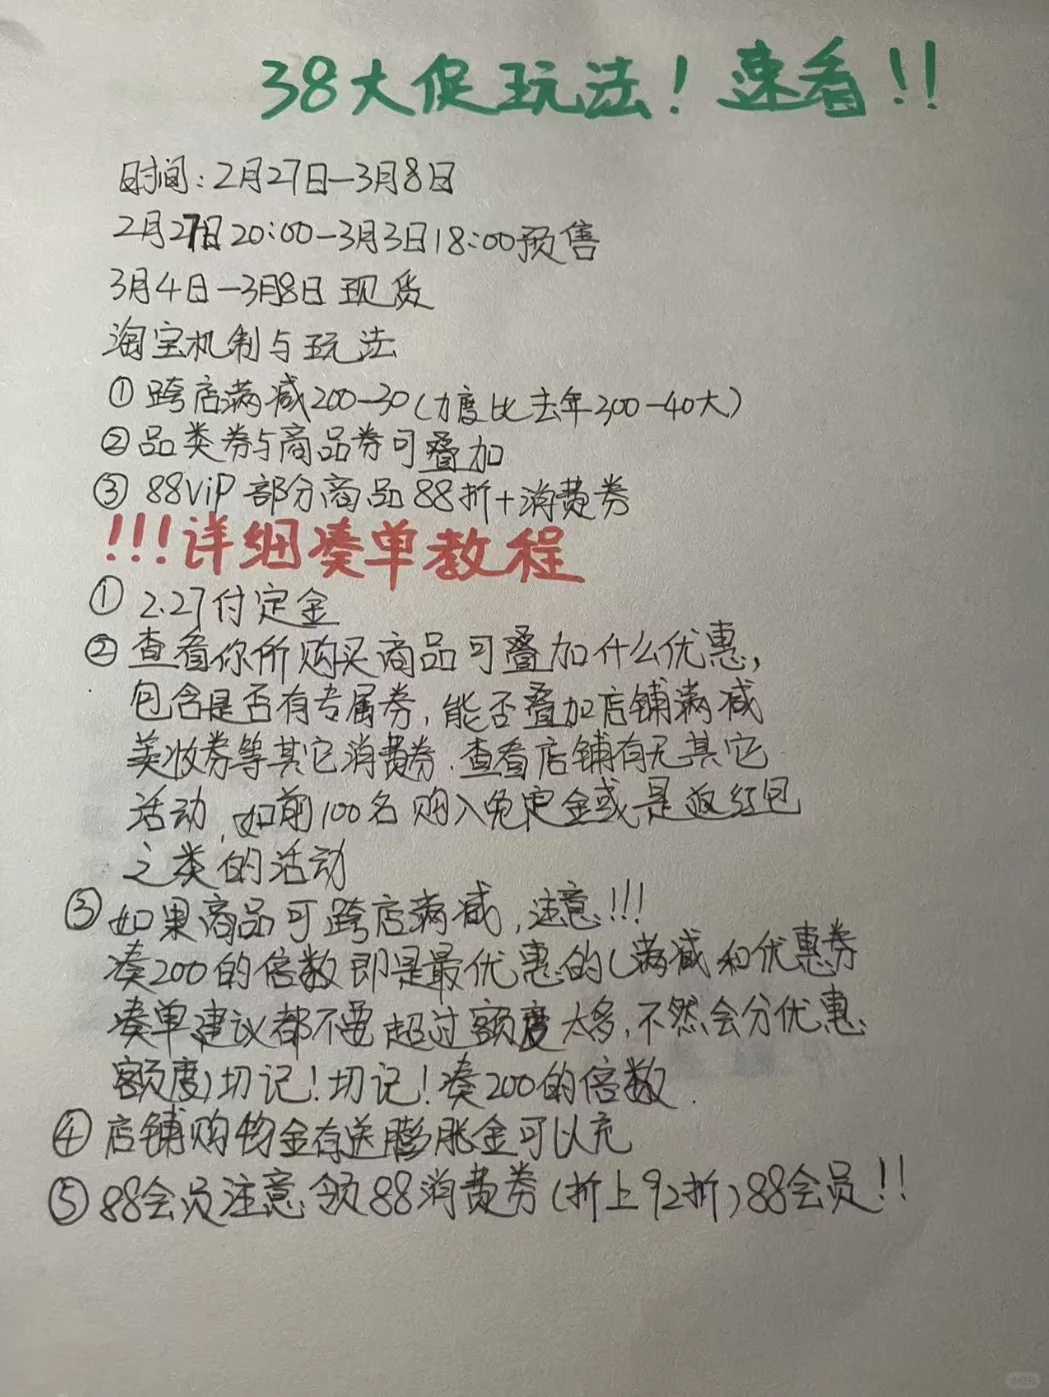 38大促玩法！速看！！
时间：2月27日—3月8日
2月27日20:00—3月3日18:00预售
3月4日—3月8日 现货
淘宝机制与玩法
①跨店满减200-30（力度比去年300-40大）
②品类券与商品券可叠加
③88ViP部分商品88折+消费券
!!!详细凑单教程
①2.27付定金
②查看你所购买商品可叠加什么优惠，
包含是否有专属券，能否叠加店铺满减
美妆券等其它消费券.查看店铺有无其它
活动，如前100名购入免定金或是返红包
之类的活动
③如果商品可跨店满减，注意!!!
凑200的倍数即是最优惠的（满减和优惠券
凑单建议都不要超过额度太多，不然会分优惠
额度）切记！切记！凑200的倍数.
④店铺购物金存送膨胀金可以充
⑤88会员注意领88消费券（折上92折）88会员!!
小红书